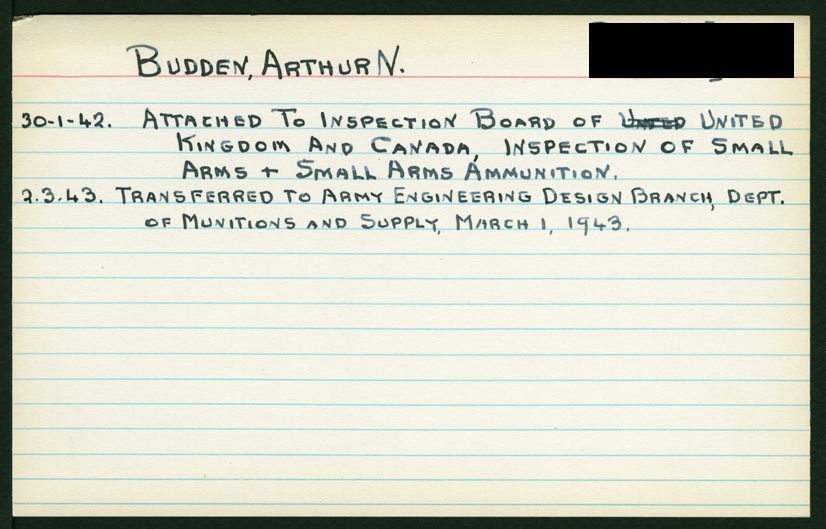 BUDDEN, ARTHUR N.
30-1-42. ATTACHED TO INSPECTION BOARD OF UNITED UNITED
KINGDOM AND CANADA, INSPECTION OF SMALL
ARMS + SMALL ARMS AMMUNITION.
2.3.43. TRANSFERRED TO ARMY ENGINEERING DESIGN BRANCH, DEPT.
OF MUNITIONS AND SUPPLY, MARCH 1, 1943.